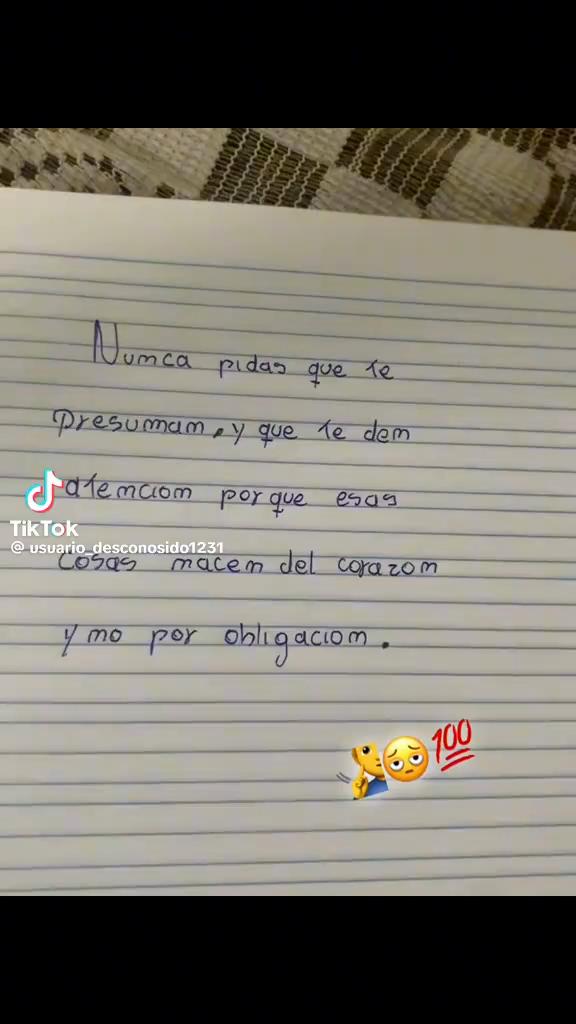 Numca pidas que te
Presumam. y que te dem
atemciom porque esas
TikTok
@ usuario_desconosido1231
Cosas macem del corazom
y mo por obligaciom.
100